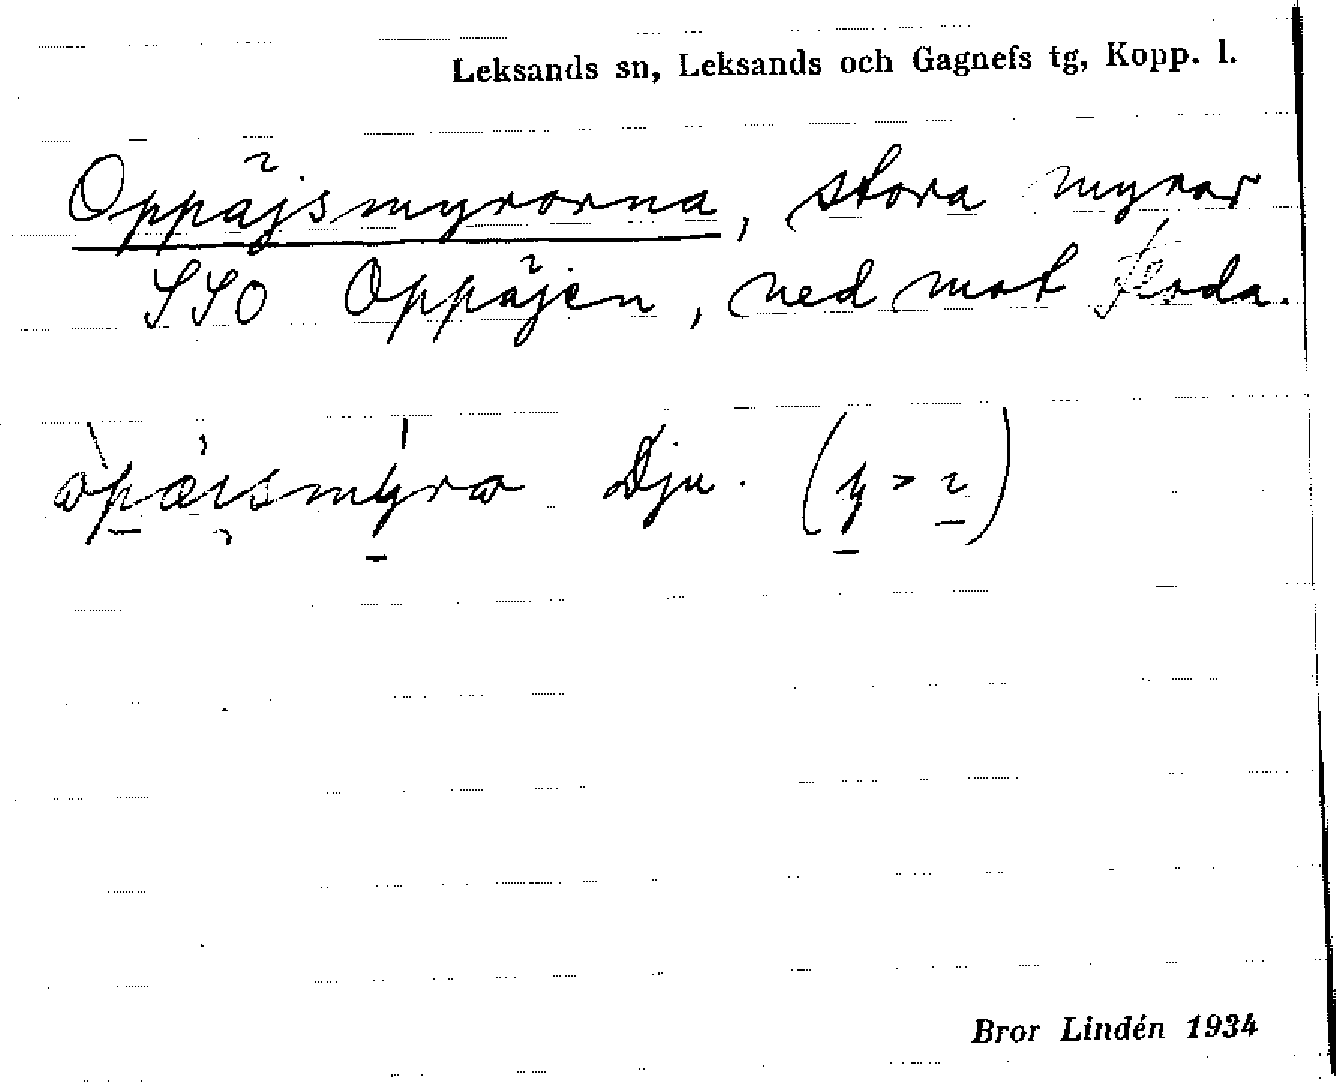 Leksands sn, Leksands och Gagnefs tg, Kopp. l.
Oppäjsmyrorna, stora myrar
SSO Oppäjen, ned mot Floda.
òpæısmýra Dju. (y > ı)
Bror Lindén 1934